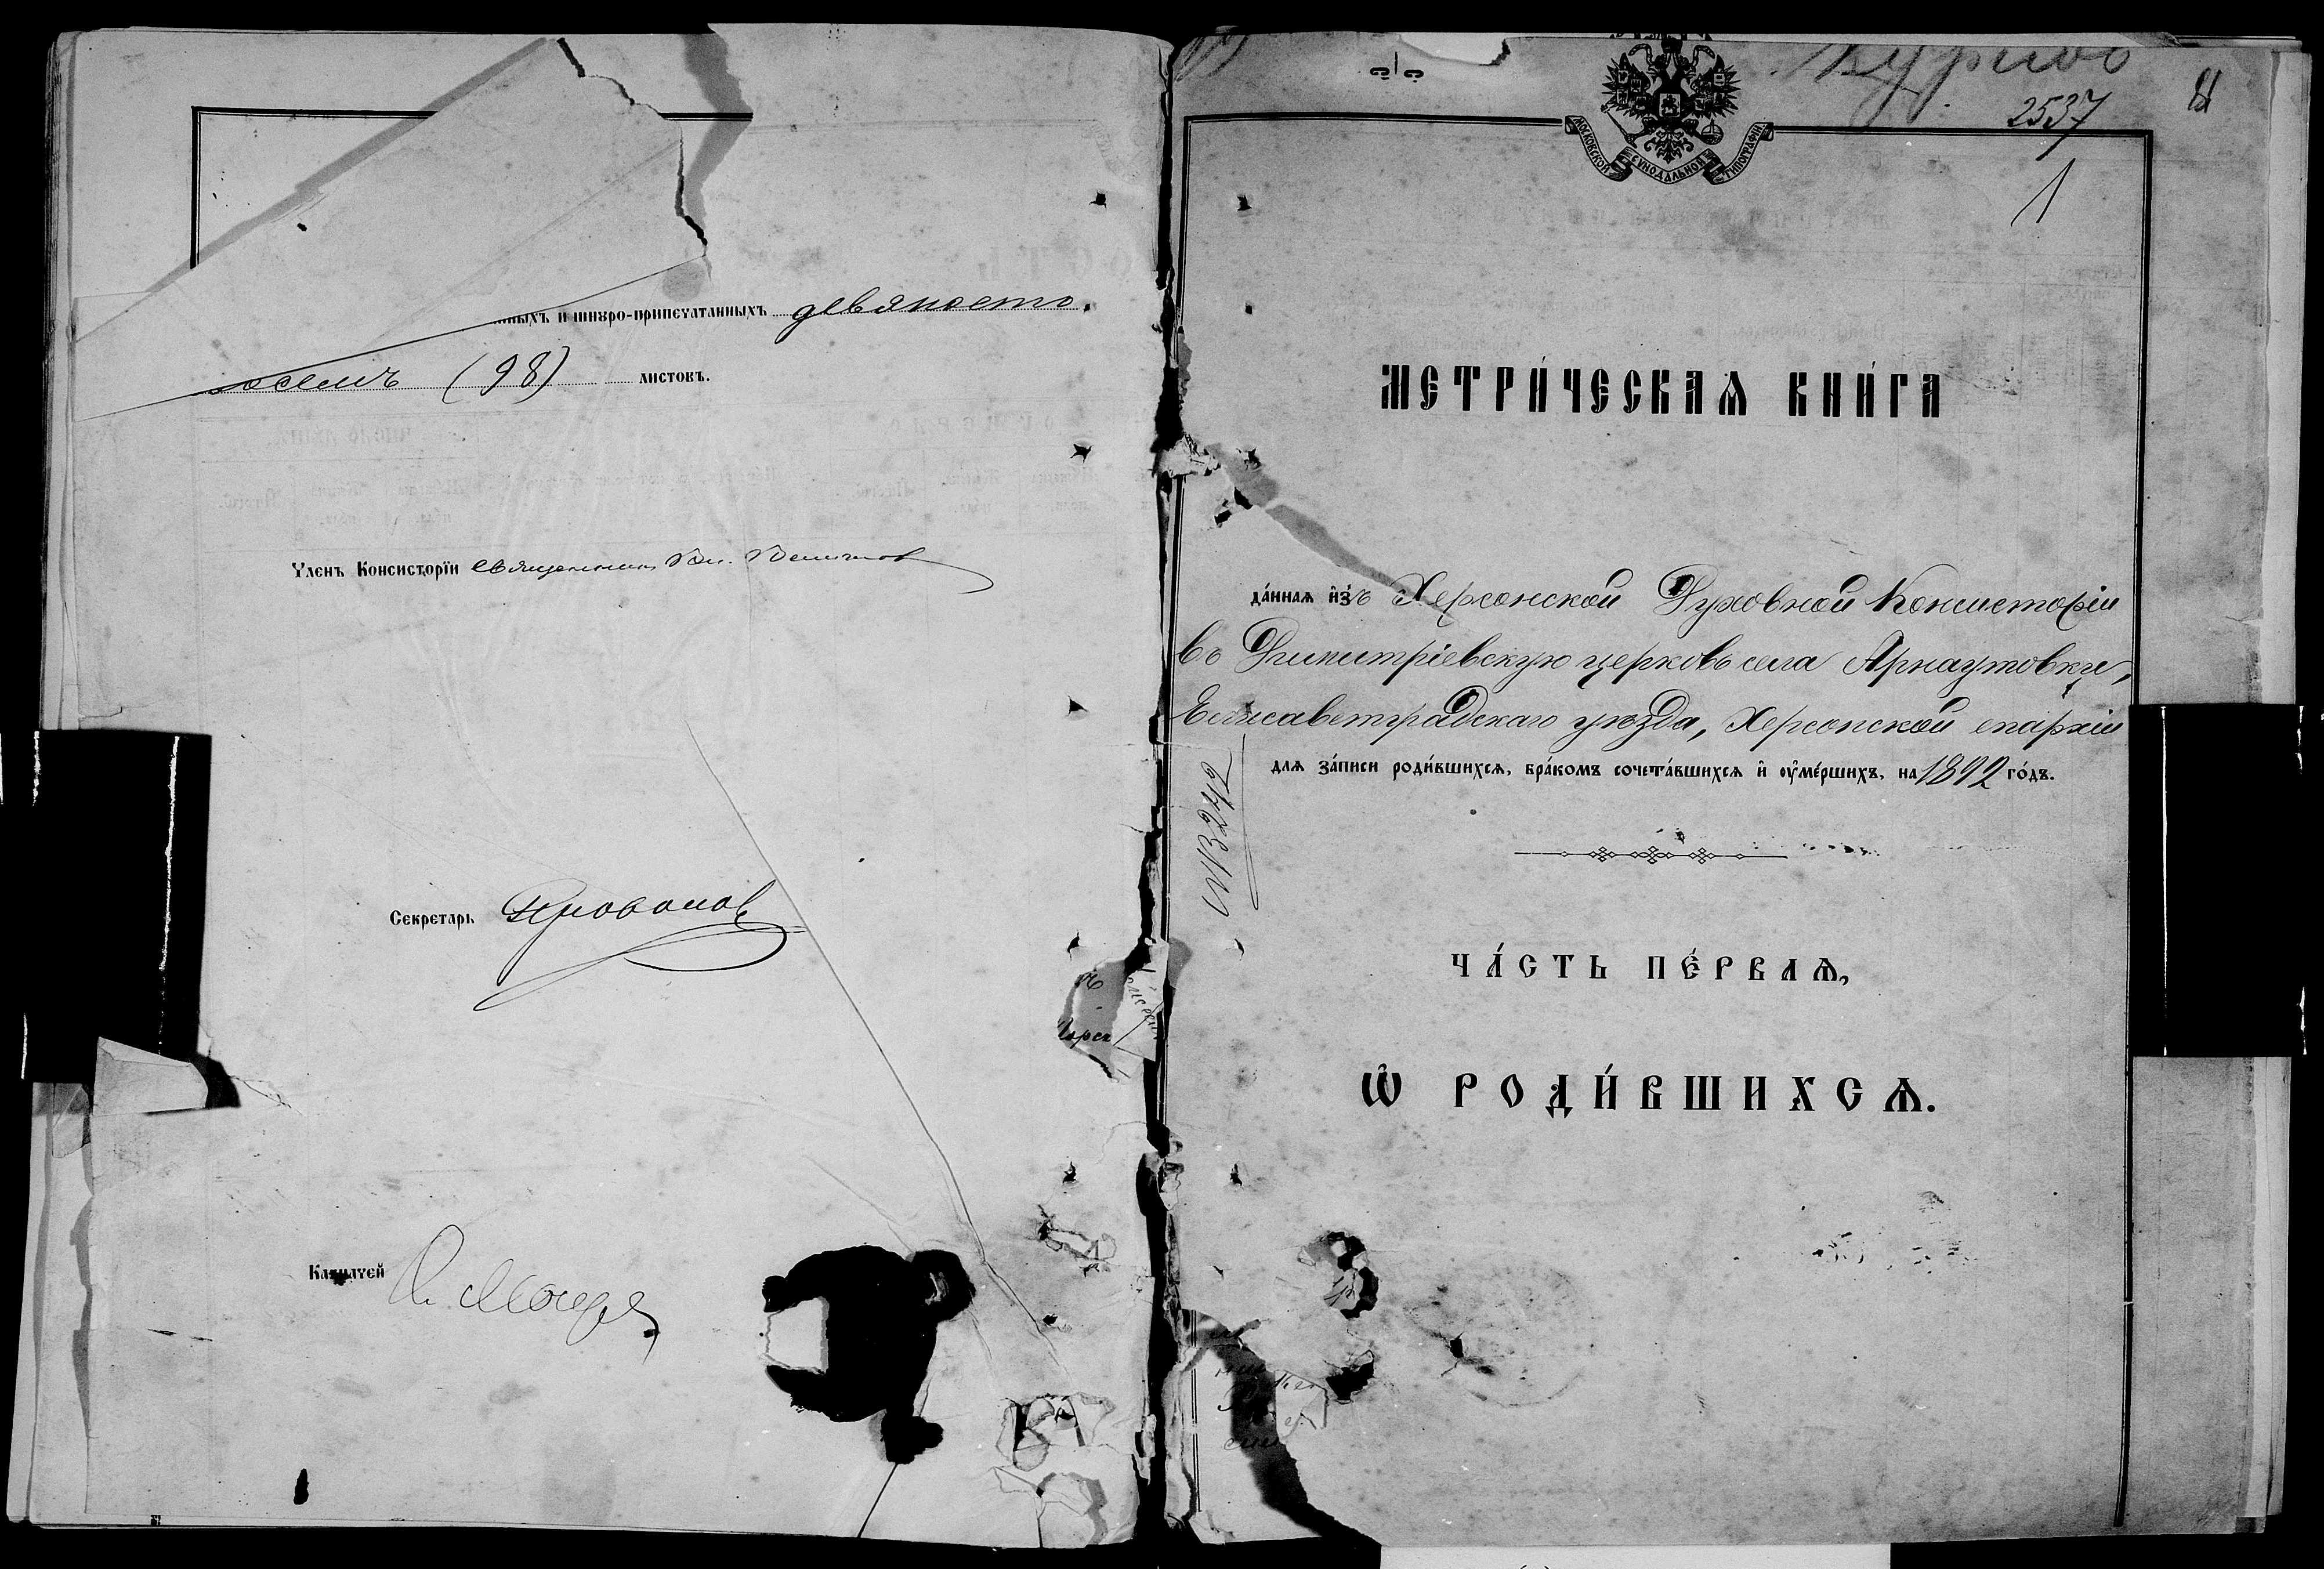 нныхъ и шнуро-припечатанныхъ девяносто
осемь (98) листовъ.
Членъ Консисторїи священникъ Вл.
Секретарь
Казначей
2537
МОСКОВСКОЙ СѴНОДАЛЬНОЙ ТИПОГРАФІИ
1
МЕТРИ́ЧЕСКАѦ КНИ́ГА
да́ннаѧ и҆зъ Херсонской Духовной Консисторіи
въ Димитріевскую церковь села Арнаутовки,
Елисаветградскаго уѣзда, Херсонской епархіи
длѧ за́писи роди́вшихсѧ, бра́комъ сочета́вшихсѧ и҆ ᲂу҆ме́ршихъ, на 1892 го́дъ.
№ 3242
ЧА́СТЬ ПЕ́РВАѦ,
Ѡ҆ РОДИ́ВШИХСѦ.